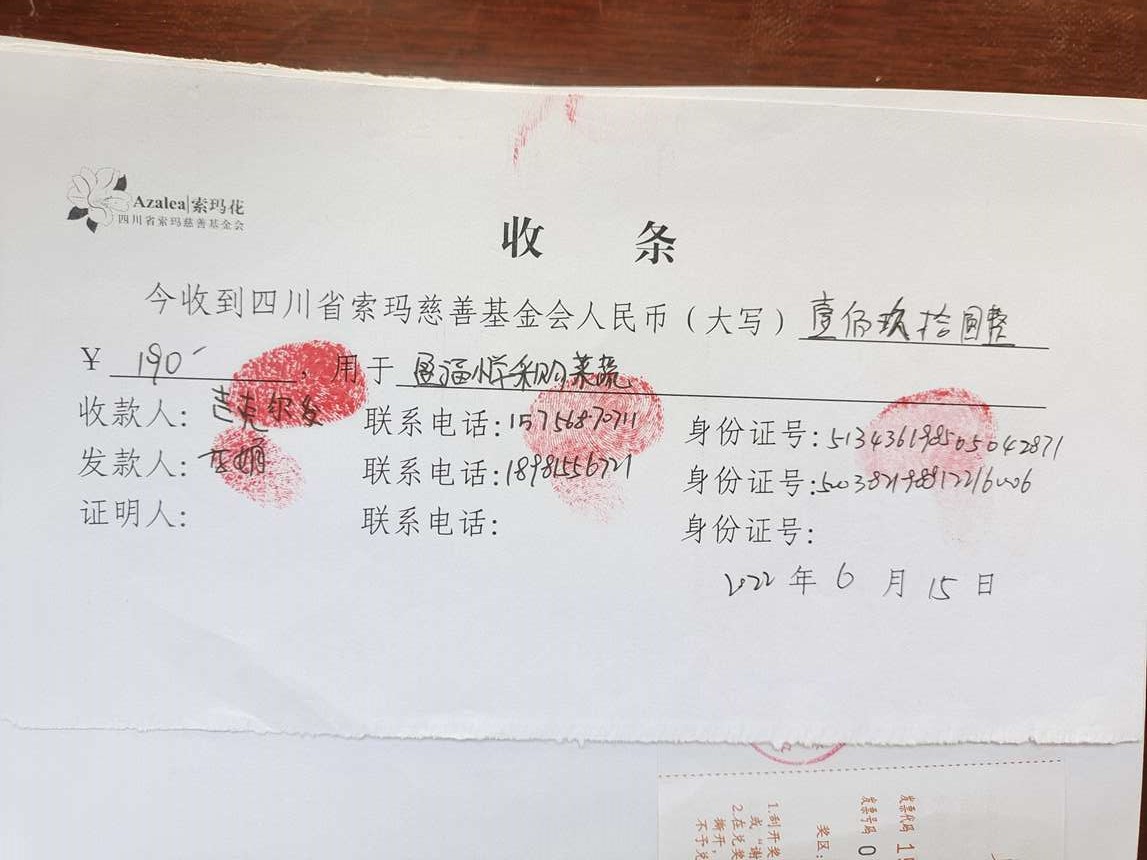 Azalea|索玛花
四川省索玛慈善基金会
收 条
今收到四川省索玛慈善基金会人民币（大写）壹佰玖拾圆整
￥ 190 ，用于 采购菜蔬
收款人：吉克尔 联系电话：15756870711 身份证号：513436198505042871
发款人：李娟 联系电话：18981556721 身份证号：500382198812216006
证明人： 联系电话： 身份证号：
2022年6月15日
发票代码 15
发票号码 0
奖区：
1.刮开奖
或“谢
撕开，
2.在兑奖
不予兑